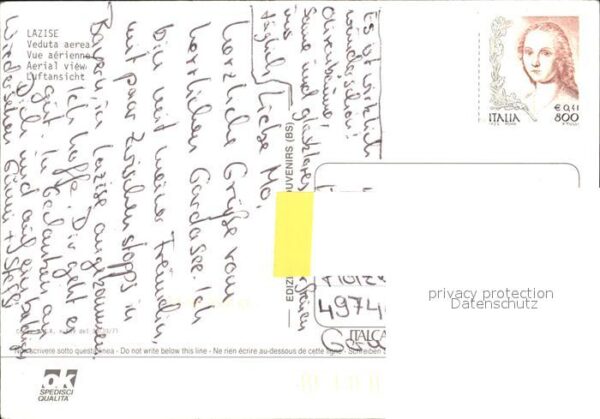 LAZISE
Veduta aerea
Vue aérienne
Aerial view
Luftansicht
Es ist wirklich
wunderschön!
Olivenbäume,
Sonne und glasklares
täglich!
Liebe Mo,
herzliche Grüße vom
herrlichen Gardasee. Ich
bin mit meiner Freundin,
mit paar Zwischenstopps in
Bayern, in Lazise angekommen.
Ich hoffe, Dir geht es
gut. In Gedanken an
Dich und auf ein baldiges
Wiedersehen
+ Steffi
€ 0,41
ITALIA 800
EDIZ
OUVENIRS (BS)
4974
Ge
ITALCA
Non scrivere sotto questa linea - Do not write below this line - Ne rien écrire au-dessous de cette ligne - Schreiben
ak
SPEDISCI
QUALITÀ
privacy protection
Datenschutz